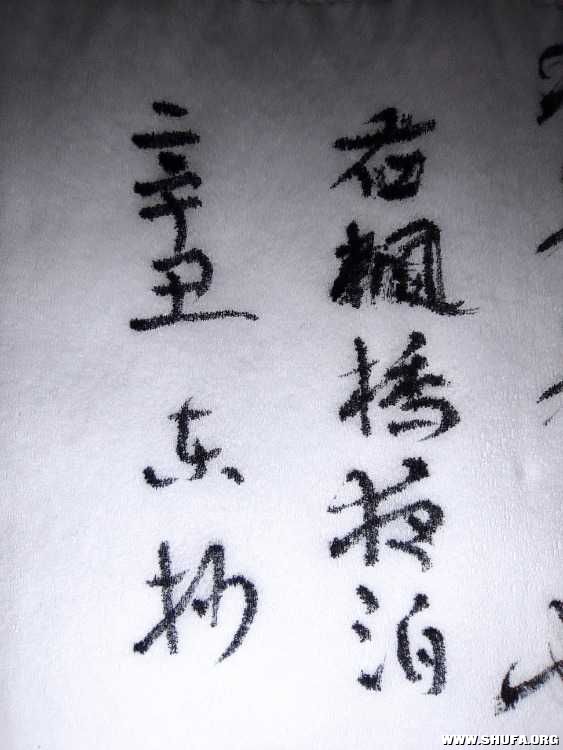 右楓橋夜泊
辛丑 东抄
WWW.SHUFA.ORG